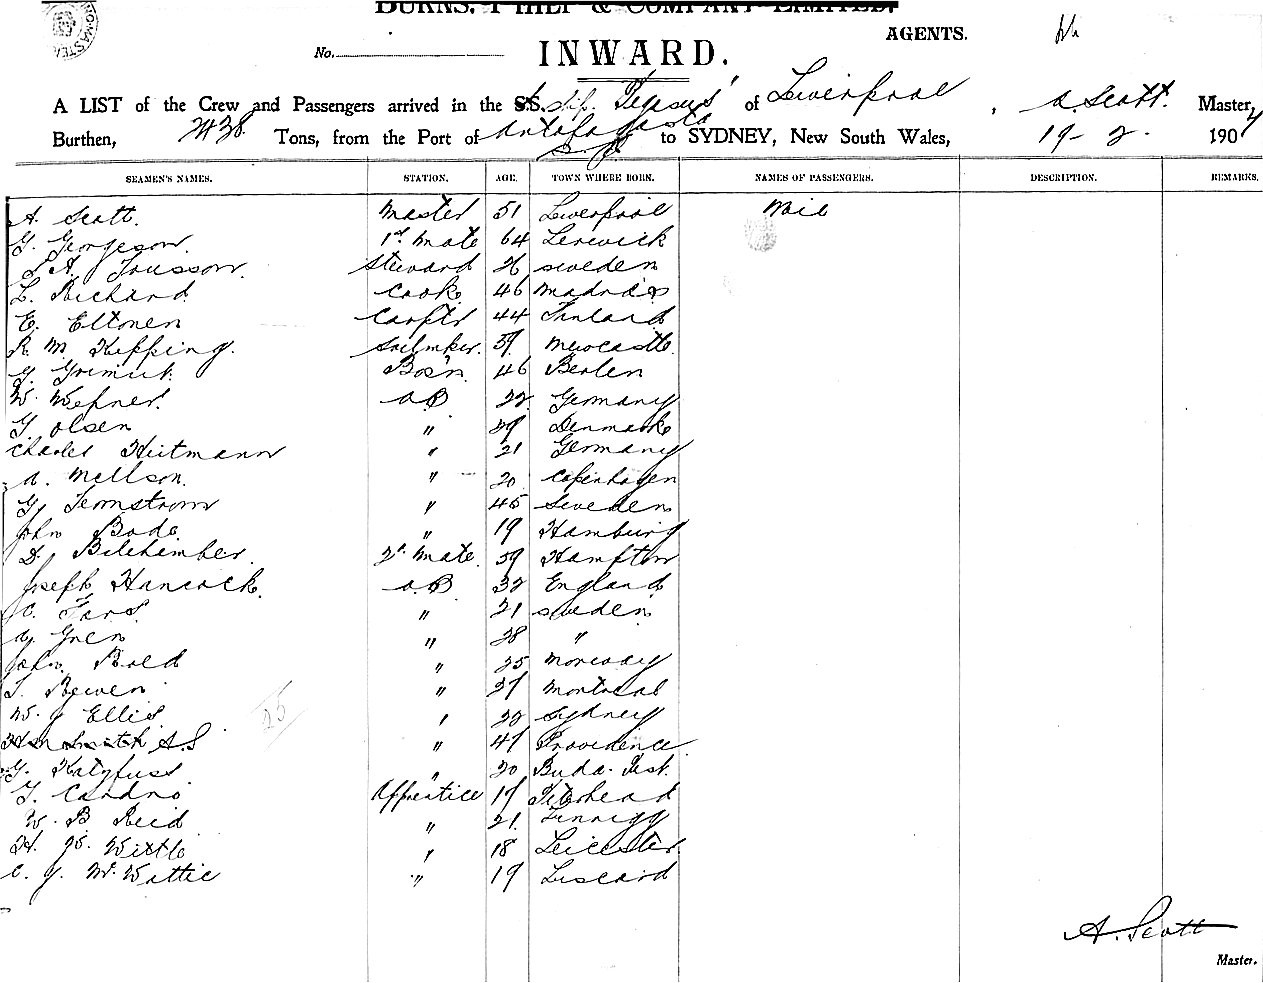 BURNS, PHILP & COMPANY LIMITED.
AGENTS.
No.
INWARD.
A LIST of the Crew and Passengers arrived in the S.S. Ship "Pegasus" of Liverpool, A. Scott. Master,
Burthen, 2438 Tons, from the Port of Antofagasta to SYDNEY, New South Wales, 19-2- 1904
SEAMEN'S NAMES. STATION. AGE. TOWN WHERE BORN. NAMES OF PASSENGERS. DESCRIPTION. REMARKS.
A. Scott. Master 51 Liverpool
G. Georgeson. 1st Mate 64 Lerwick
Steward 26 Sweden
L. Richard Cook 46
E. Eltonen Carptr 44 Finland
R. M. Kipping. Sailmker. Newcastle
G. Bos'n 46 Berlen
W. Wefner. A.B 22 Germany
G. Olsen " 29 Denmark
Charles Heitmann " 21 Germany
A. Mellson. " 20 Copenhagen
G. " 45 Sweden
John Bode " 19 Hamburg
D. 2nd Mate. 59 Hampton
Joseph Hancock. A.B 32 England
C. " 21 Sweden
" 28 "
John " 25 Norway
Bewen " Montreal
W. J Ellis " 22 Sydney
Wm Smith A.S " Providence
G. Katyfuss " 20 Buda-Pest.
G. Cardno Apprentice 19 Peterhead
W. B Reid " 21.
H. W. " 18 Leicester.
C. J. " 19 Liscard
25
A. Scott
Master.